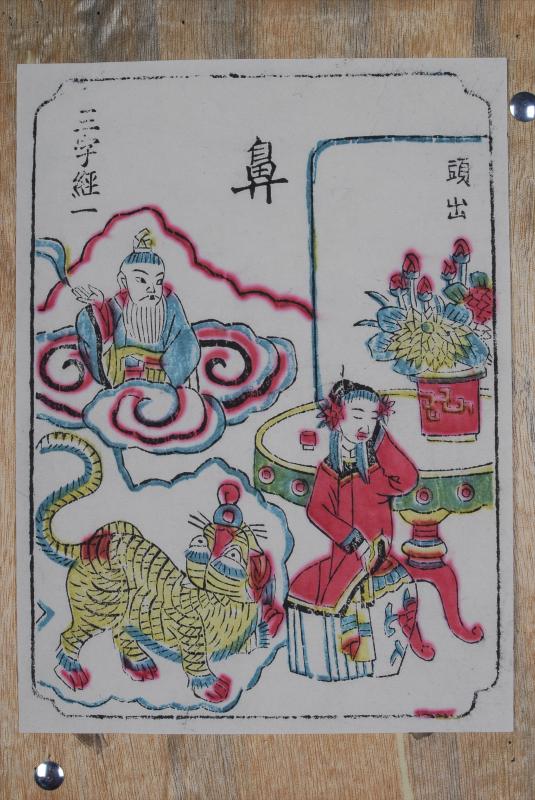 頭出
鼻
三字經一